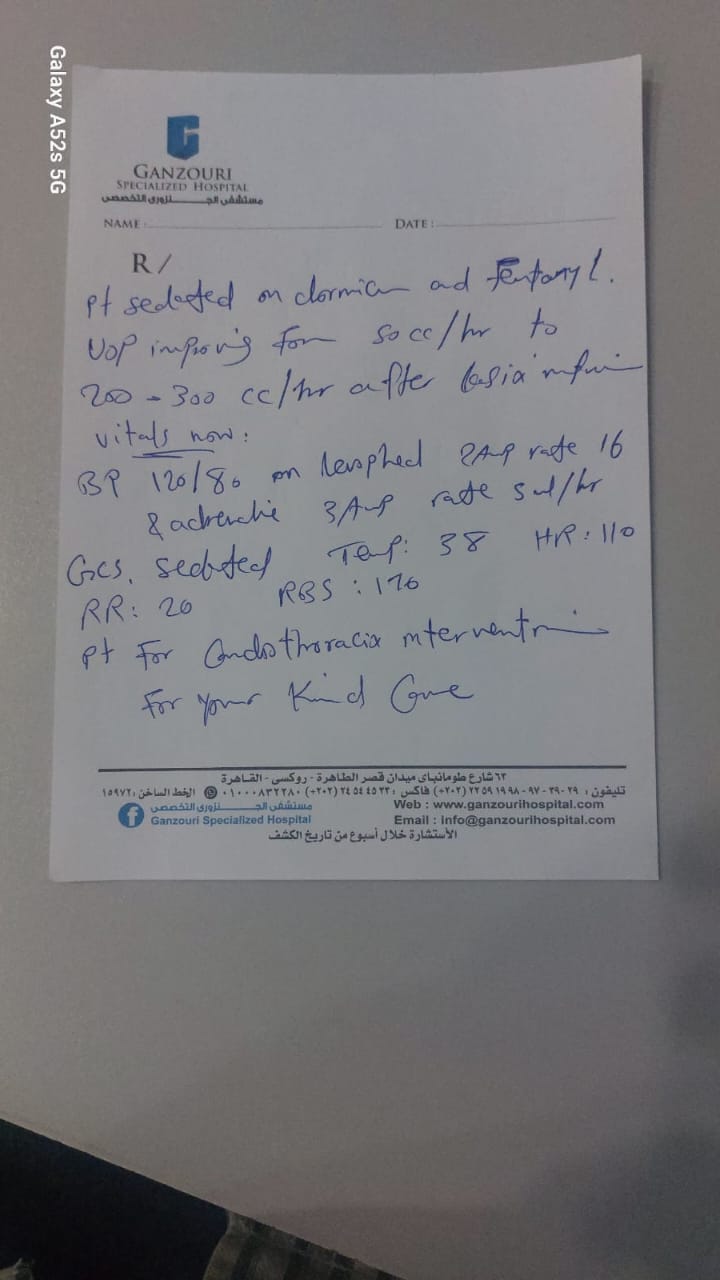 Galaxy A52s 5G
GANZOURI
SPECIALIZED HOSPITAL
مستشفى الجنزورى التخصصى
NAME : DATE :
R/
pt sedated on dormicum and Fentanyl.
UOP improving from 50 cc/hr to
200 - 300 cc/hr after lasix infusion
vitals now:
BP 120/80 on levophed 2Amp rate 16
& adrenaline 3Amp rate 5 ml/hr
GCS. sedated Temp: 38 HR: 110
RR: 20 RBS : 170
pt For Cardiothoracic intervention
For your Kind Care
٦٣ شارع طومانباى ميدان قصر الطاهرة - روكسى - القاهرة
تليفون : ٢٩ - ٣٩ - ٩٧ - ٩٨ ١٩ ٥٩ ٢٢ (٢٠٢+) فاكس : ٢٣ ٤٥ ٥٤ ٢٤ (٢٠٢+) ٠١٠٠٠٨٣٢٢٨٠ الخط الساخن : ١٥٩٧٢
مستشفى الجنزورى التخصصى Web : www.ganzourihospital.com
Ganzouri Specialized Hospital Email : Info@ganzourihospital.com
الأستشارة خلال أسبوع من تاريخ الكشف